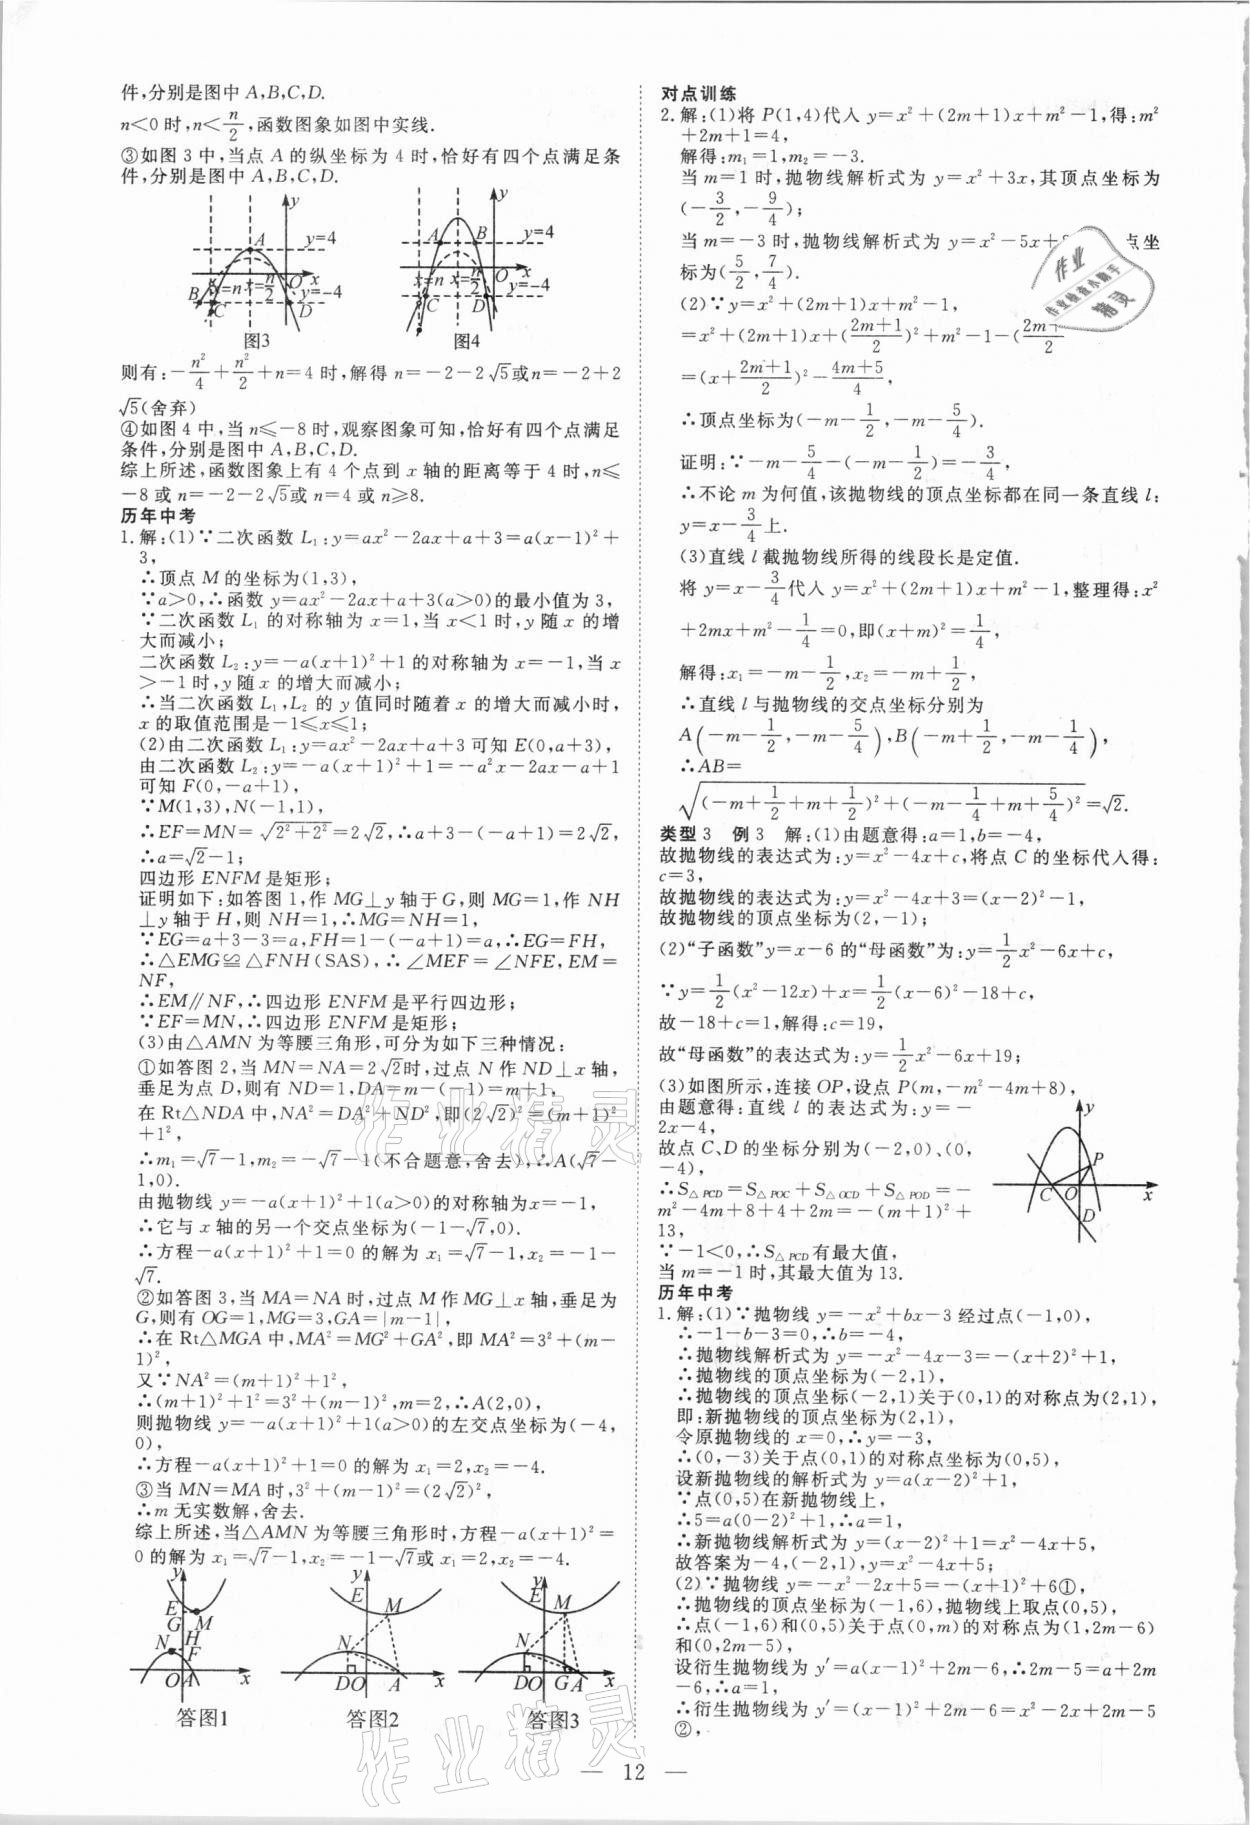 件,分别是图中 A,B,C,D.
n<0 时,n<n/2,函数图象如图中实线.
③如图 3 中,当点 A 的纵坐标为 4 时,恰好有四个点满足条
件,分别是图中 A,B,C,D.
y A y=4 x=n x=n/2 O x B C D y=-4
图3
y A B y=4 x=n x=n/2 O x C D y=-4
图4
则有:-n²/4+n²/2+n=4 时,解得 n=-2-2√5或n=-2+2
√5(舍弃)
④如图 4 中,当 n≤-8时,观察图象可知,恰好有四个点满足
条件,分别是图中 A,B,C,D.
综上所述,函数图象上有 4 个点到 x 轴的距离等于 4 时,n≤
-8 或 n=-2-2√5或 n=4 或 n≥8.
历年中考
1.解:(1)∵二次函数 L₁:y=ax²-2ax+a+3=a(x-1)²+
3,
∴顶点 M 的坐标为(1,3),
∵a>0,∴函数 y=ax²-2ax+a+3(a>0)的最小值为 3,
∵二次函数 L₁ 的对称轴为 x=1,当 x<1 时,y 随 x 的增
大而减小;
二次函数 L₂:y=-a(x+1)²+1 的对称轴为 x=-1,当 x
>-1 时,y 随 x 的增大而减小;
∴当二次函数 L₁,L₂ 的 y 值同时随着 x 的增大而减小时,
x 的取值范围是-1≤x≤1;
(2)由二次函数 L₁:y=ax²-2ax+a+3 可知 E(0,a+3),
由二次函数 L₂:y=-a(x+1)²+1=-a²x-2ax-a+1
可知 F(0,-a+1),
∵M(1,3),N(-1,1),
∴EF=MN=√(2²+2²)=2√2,∴a+3-(-a+1)=2√2,
∴a=√2-1;
四边形 ENFM 是矩形;
证明如下:如答图 1,作 MG⊥y 轴于 G,则 MG=1,作 NH
⊥y 轴于 H,则 NH=1,∴MG=NH=1,
∵EG=a+3-3=a,FH=1-(-a+1)=a,∴EG=FH,
∴△EMG≌△FNH(SAS),∴∠MEF=∠NFE,EM=
NF,
∴EM∥NF,∴四边形 ENFM 是平行四边形;
∵EF=MN,∴四边形 ENFM 是矩形;
(3)由△AMN 为等腰三角形,可分为如下三种情况:
①如答图 2,当 MN=NA=2√2时,过点 N 作 ND⊥x 轴,
垂足为点 D,则有 ND=1,DA=m-(-1)=m+1,
在 Rt△NDA 中,NA²=DA²+ND²,即(2√2)²=(m+1)²
+1²,
∴m₁=√7-1,m₂=-√7-1(不合题意,舍去),∴A(√7-
1,0).
由抛物线 y=-a(x+1)²+1(a>0)的对称轴为 x=-1,
∴它与 x 轴的另一个交点坐标为(-1-√7,0).
∴方程-a(x+1)²+1=0 的解为 x₁=√7-1,x₂=-1-
√7.
②如答图 3,当 MA=NA 时,过点 M 作 MG⊥x 轴,垂足为
G,则有 OG=1,MG=3,GA=|m-1|,
∴在 Rt△MGA 中,MA²=MG²+GA²,即 MA²=3²+(m-
1)²,
又∵NA²=(m+1)²+1²,
∴(m+1)²+1²=3²+(m-1)²,m=2,∴A(2,0),
则抛物线 y=-a(x+1)²+1(a>0)的左交点坐标为(-4,
0),
∴方程-a(x+1)²+1=0 的解为 x₁=2,x₂=-4.
③当 MN=MA 时,3²+(m-1)²=(2√2)²,
∴m 无实数解,舍去.
综上所述,当△AMN 为等腰三角形时,方程-a(x+1)²=
0 的解为 x₁=√7-1,x₂=-1-√7或 x₁=2,x₂=-4.
y E G M N H F O A x
答图1
y E M N D O A x
答图2
y E M N D O G A x
答图3
对点训练
2.解:(1)将 P(1,4)代入 y=x²+(2m+1)x+m²-1,得:m²
+2m+1=4,
解得:m₁=1,m₂=-3.
当 m=1 时,抛物线解析式为 y=x²+3x,其顶点坐标为
(-3/2,-9/4);
当 m=-3 时,抛物线解析式为 y=x²-5x+ 点坐
标为(5/2,7/4).
(2)∵y=x²+(2m+1)x+m²-1,
=x²+(2m+1)x+((2m+1)/2)²+m²-1-(2m+/2
=(x+(2m+1)/2)²-(4m+5)/4,
∴顶点坐标为(-m-1/2,-m-5/4).
证明:∵-m-5/4-(-m-1/2)=-3/4,
∴不论 m 为何值,该抛物线的顶点坐标都在同一条直线 l:
y=x-3/4上.
(3)直线 l 截抛物线所得的线段长是定值.
将 y=x-3/4代入 y=x²+(2m+1)x+m²-1,整理得:x²
+2mx+m²-1/4=0,即(x+m)²=1/4,
解得:x₁=-m-1/2,x₂=-m+1/2,
∴直线 l 与抛物线的交点坐标分别为
A(-m-1/2,-m-5/4),B(-m+1/2,-m-1/4),
∴AB=
√((-m+1/2+m+1/2)²+(-m-1/4+m+5/4)²)=√2.
类型 3 例 3 解:(1)由题意得:a=1,b=-4,
故抛物线的表达式为:y=x²-4x+c,将点 C 的坐标代入得:
c=3,
故抛物线的表达式为:y=x²-4x+3=(x-2)²-1,
故抛物线的顶点坐标为(2,-1);
(2)“子函数”y=x-6 的“母函数”为:y=1/2x²-6x+c,
∵y=1/2(x²-12x)+x=1/2(x-6)²-18+c,
故-18+c=1,解得:c=19,
故“母函数”的表达式为:y=1/2x²-6x+19;
(3)如图所示,连接 OP,设点 P(m,-m²-4m+8),
由题意得:直线 l 的表达式为:y=-
2x-4,
故点 C、D 的坐标分别为(-2,0)、(0,
-4),
∴S△PCD=S△POC+S△OCD+S△POD=-
m²-4m+8+4+2m=-(m+1)²+
13,
y P C O D x
∵-1<0,∴S△PCD有最大值,
当 m=-1 时,其最大值为 13.
历年中考
1.解:(1)∵抛物线 y=-x²+bx-3 经过点(-1,0),
∴-1-b-3=0,∴b=-4,
∴抛物线解析式为 y=-x²-4x-3=-(x+2)²+1,
∴抛物线的顶点坐标为(-2,1),
∴抛物线的顶点坐标(-2,1)关于(0,1)的对称点为(2,1),
即:新抛物线的顶点坐标为(2,1),
令原抛物线的 x=0,∴y=-3,
∴(0,-3)关于点(0,1)的对称点坐标为(0,5),
设新抛物线的解析式为 y=a(x-2)²+1,
∵点(0,5)在新抛物线上,
∴5=a(0-2)²+1,∴a=1,
∴新抛物线解析式为 y=(x-2)²+1=x²-4x+5,
故答案为-4,(-2,1),y=x²-4x+5;
(2)∵抛物线 y=-x²-2x+5=-(x+1)²+6①,
∴抛物线的顶点坐标为(-1,6),抛物线上取点(0,5),
∴点(-1,6)和(0,5)关于点(0,m)的对称点为(1,2m-6)
和(0,2m-5),
设衍生抛物线为 y′=a(x-1)²+2m-6,∴2m-5=a+2m
-6,∴a=1,
∴衍生抛物线为 y′=(x-1)²+2m-6=x²-2x+2m-5
②,
— 12 —
作业
作业检查小助手
精灵
作业精灵
作业精灵